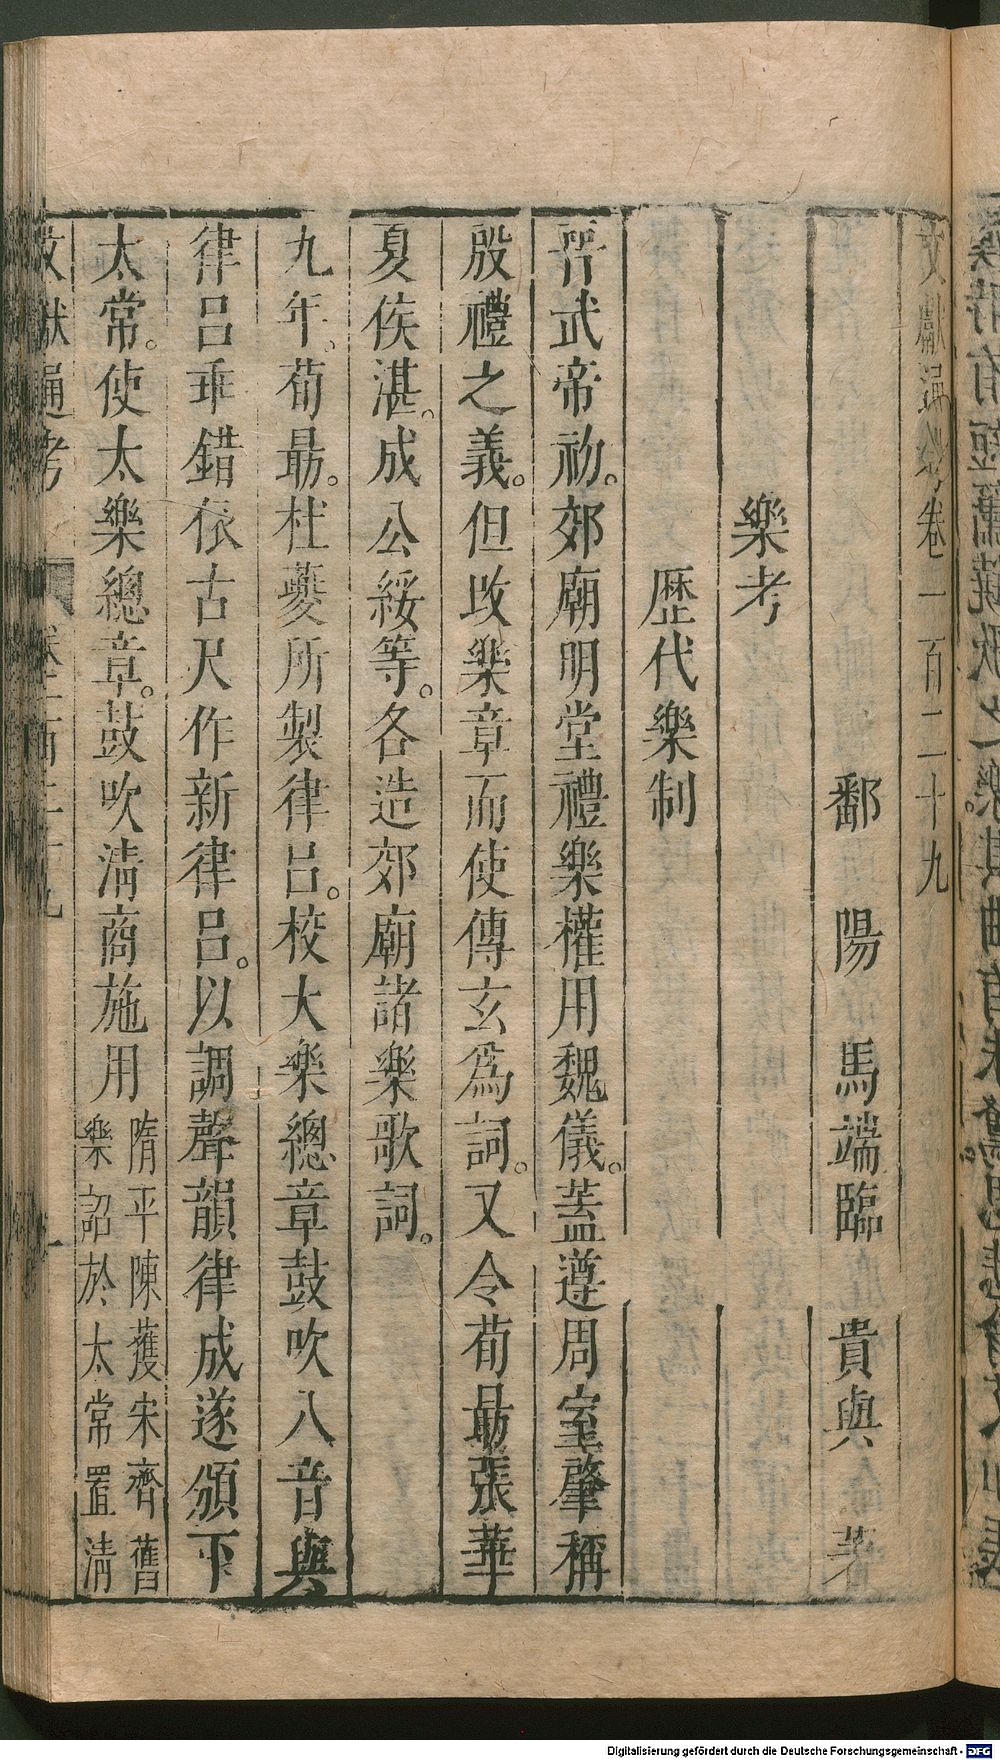 文獻通考卷一百二十九
鄱陽馬端臨貴與著
樂考
歷代樂制
晉武帝初。郊廟明堂禮樂權用魏儀。蓋遵周室肇稱
殷禮之義。但改樂章而使傅玄爲詞。又令荀勗張華
夏侯湛。成公綏等。各造郊廟諸樂歌詞。
九年、荀勗。杜夔所製律呂。校大樂總章鼓吹八音與
律呂乖錯依古尺作新律呂。以調聲韻律成遂頒下
太常。使太樂總章。鼓吹清商施用
隋平陳獲宋齊舊
樂詔於太常置清
文獻通考
卷一百二十九
一
Digitalisierung gefördert durch die Deutsche Forschungsgemeinschaft - DFG